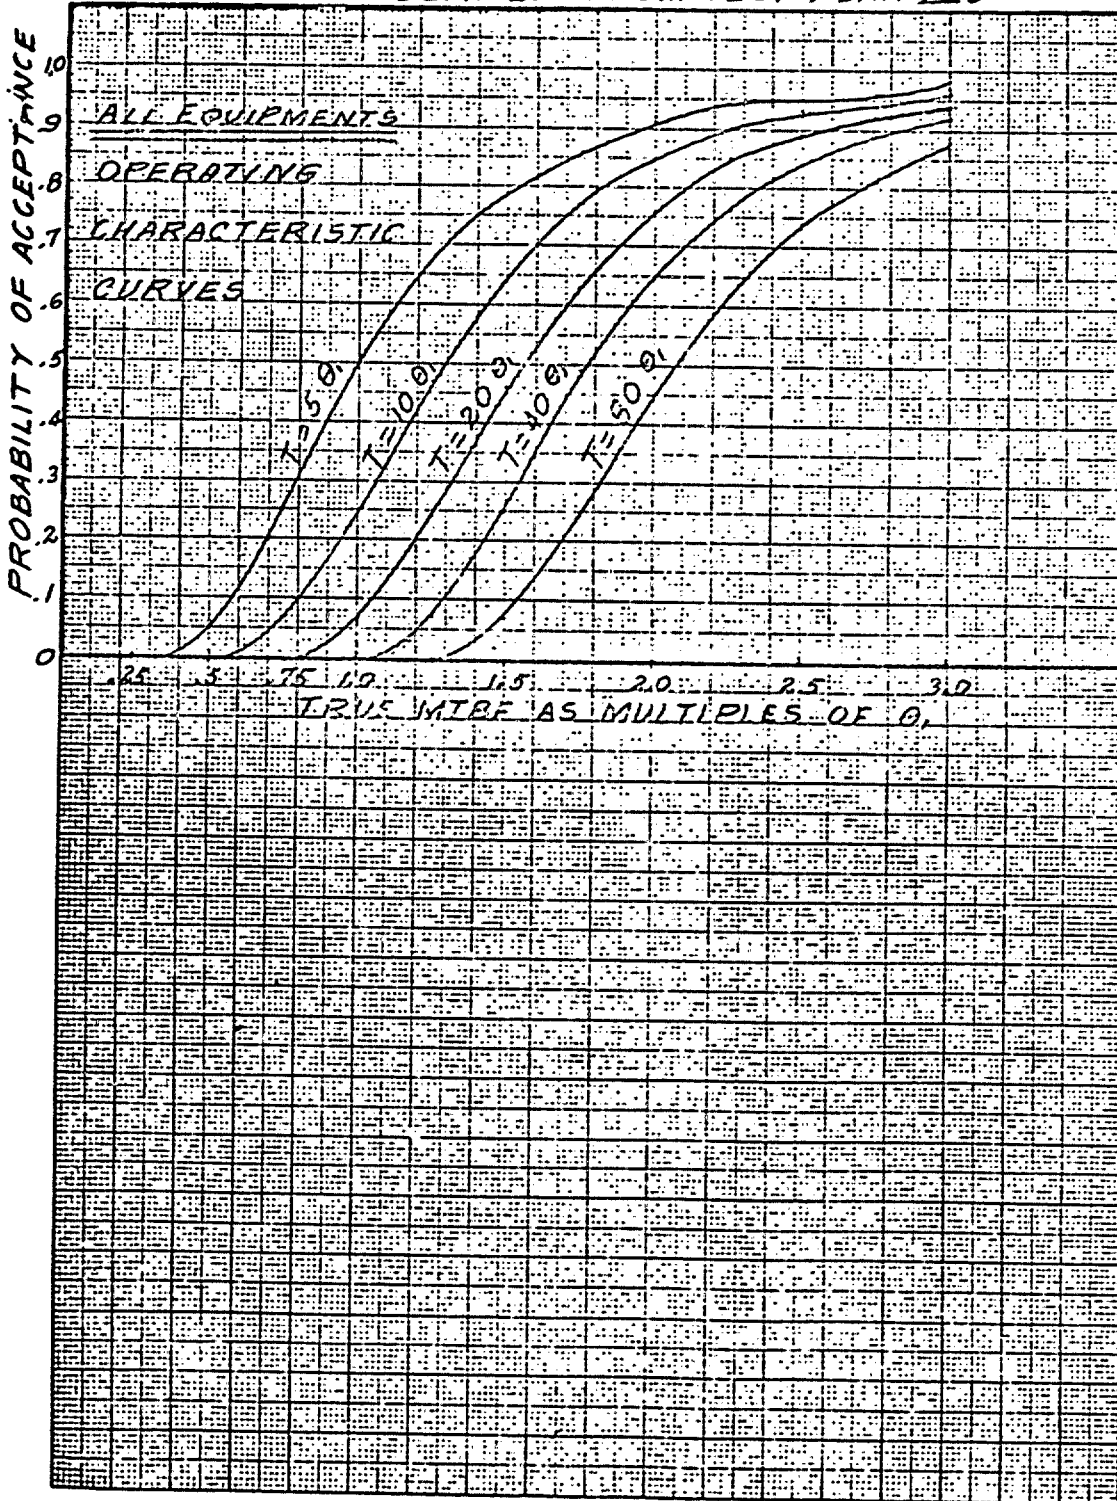 TEST PLAN
PROBABILITY OF ACCEPTANCE
1.0
.9
.8
.7
.6
.5
.4
.3
.2
.1
0
ALL EQUIPMENTS
OPERATING
CHARACTERISTIC
CURVES
T=5 θ₁
T=10 θ₁
T=20 θ₁
T=40 θ₁
T=80 θ₁
.25 .5 .75 1.0 1.5 2.0 2.5 3.0
TRUE MTBF AS MULTIPLES OF θ₁